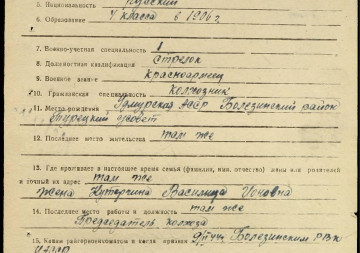 5. Национальность Русский
6. Образование 4 класса в 1906 г.
7. Военно-учетная специальность 1
8. Должностная квалификация Стрелок
9. Военное звание Красноармеец
10. Гражданская специальность Колхозник
11. Место рождения АССР Балезинский район
Турецкий совет
12. Последнее место жительства там же
13. Где проживает в настоящее время семья (фамилия, имя, отчество) жены или родителей
и точный их адрес там же
Жена Василиса
14. Последнее место работы и должность там же
Председатель колхоза
15. Каким райвоенкоматом и когда призван Балезинским РВК